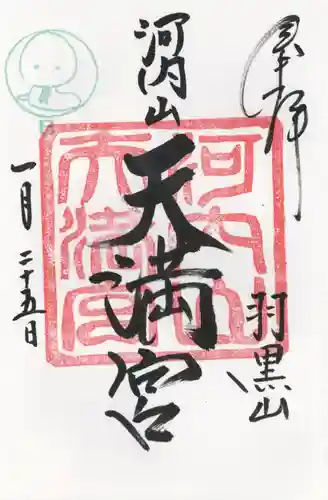 奉拝
羽黒山
河内山
天満宮
一月二十五日
河内山
天満宮